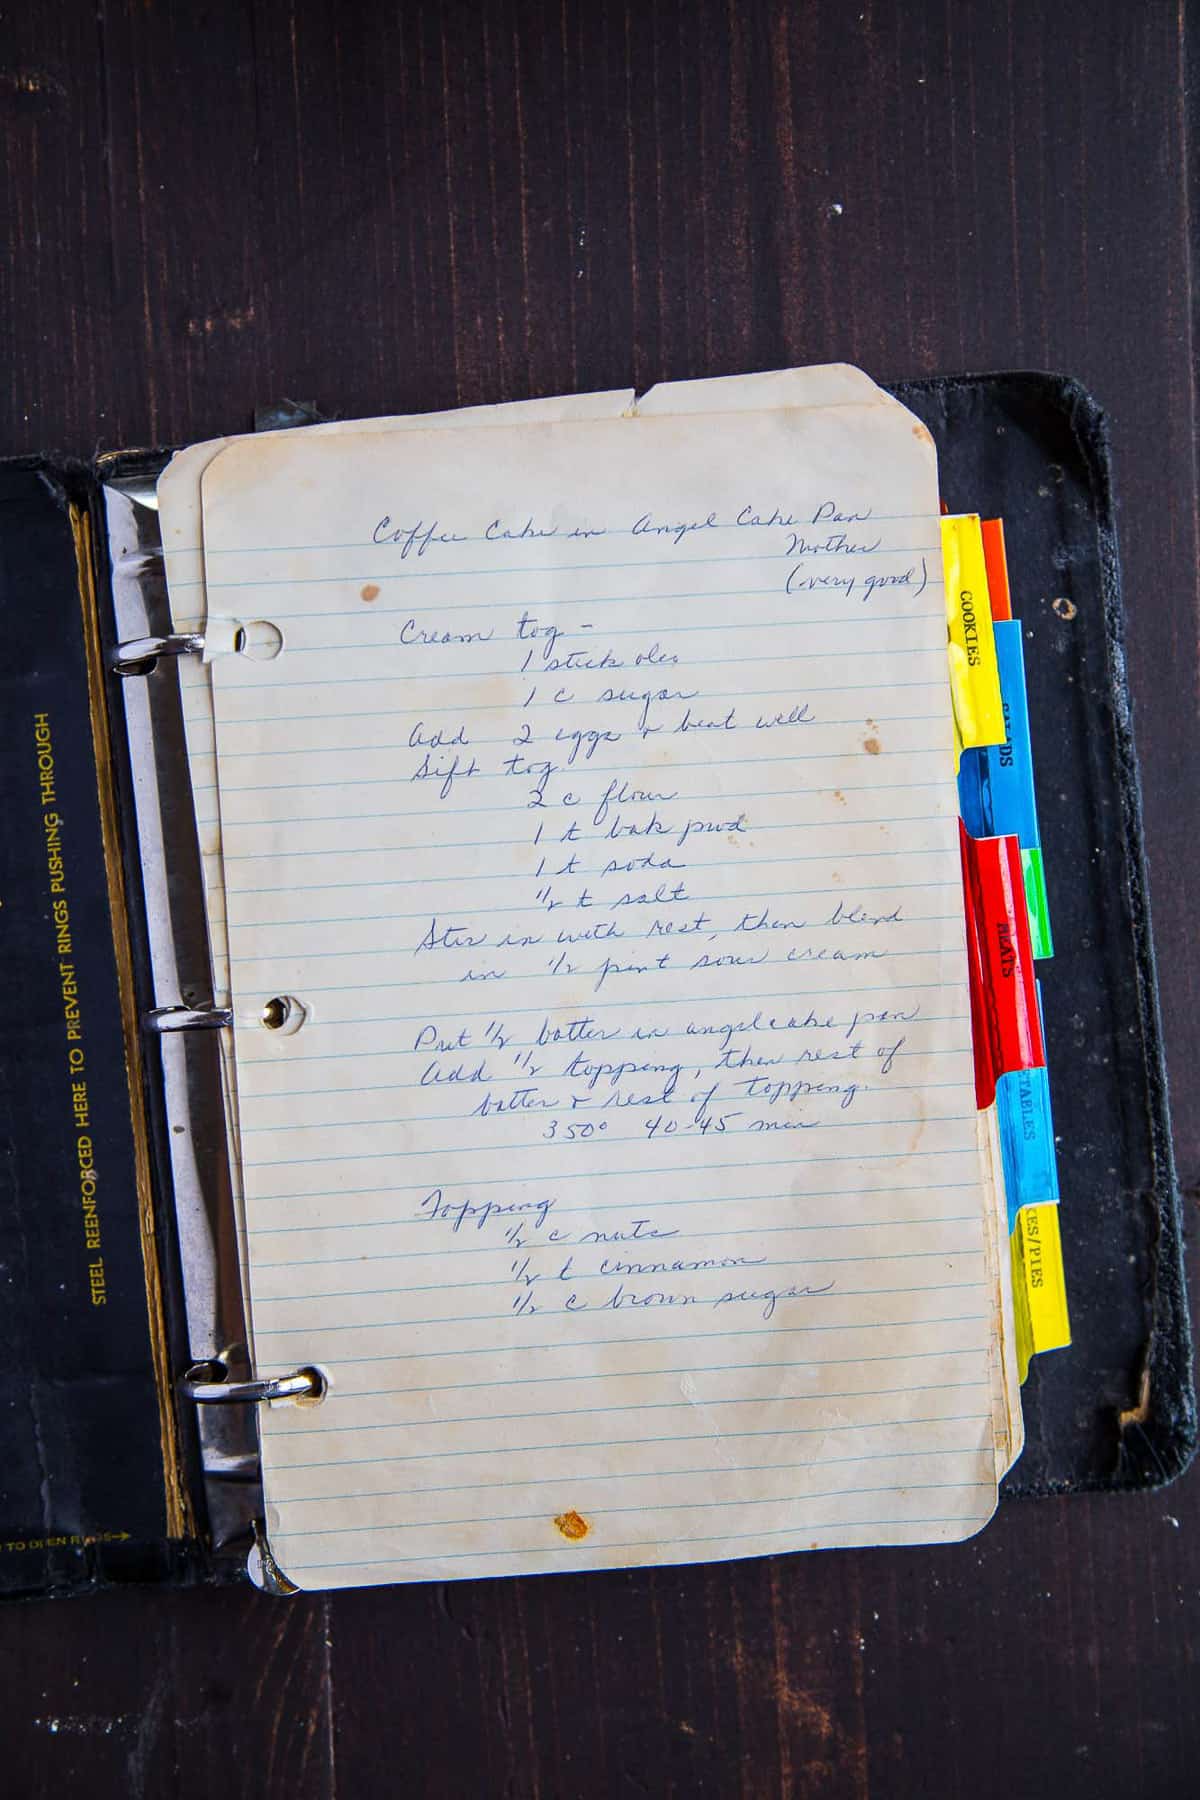 Coffee Cake in Angel Cake Pan
Mother
(very good)
Cream tog -
1 stick oleo
1 c sugar
Add 2 eggs & beat well
Sift tog.
2 c flour
1 t bak powd
1 t soda
1/2 t salt
Stir in with rest, then blend
in 1/2 pint sour cream
Put 1/2 batter in angelcake pan
Add 1/2 topping, then rest of
batter & rest of topping.
350° 40-45 min
Topping
1/2 c nuts
1/2 t cinnamon
1/2 c brown sugar
STEEL REENFORCED HERE TO PREVENT RINGS PUSHING THROUGH
TO OPEN RINGS→
COOKIES
SALADS
MEATS
ETABLES
KES/PIES